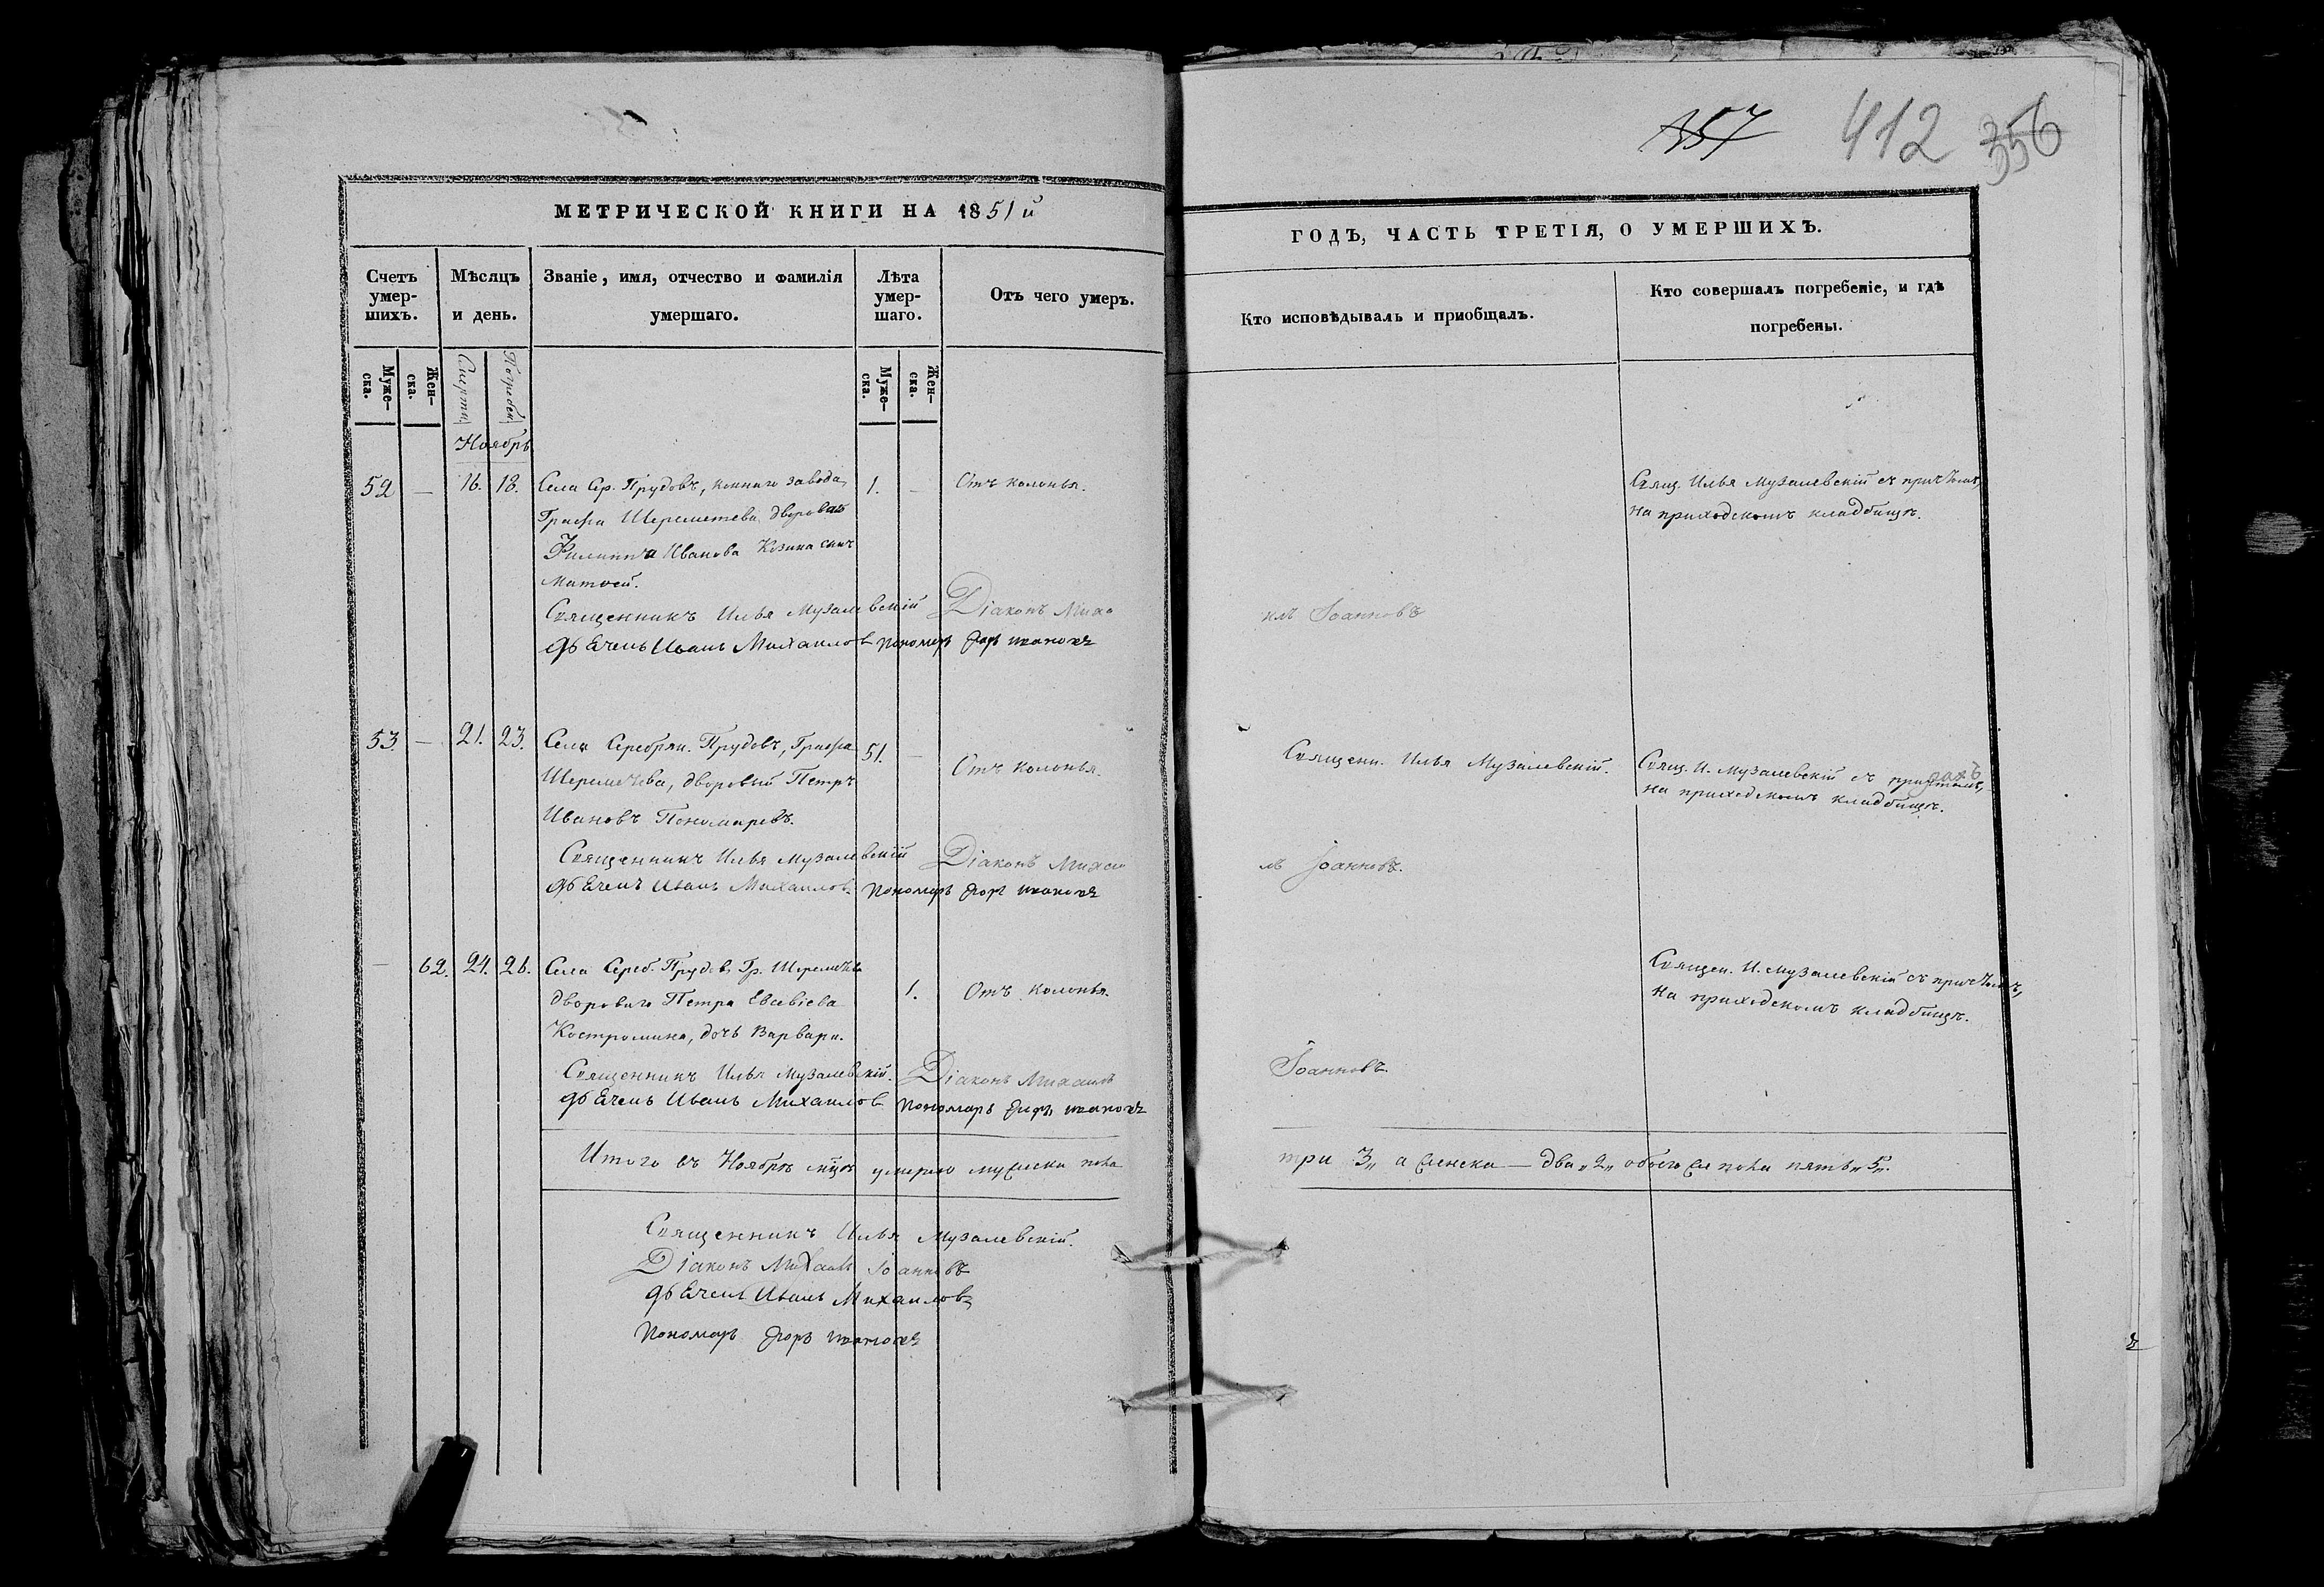 357 412 356
МЕТРИЧЕСКОЙ КНИГИ НА 1851й
ГОДЪ, ЧАСТЬ ТРЕТІЯ, О УМЕРШИХЪ.
Счетъ умер-шихъ.
Мѣсяцъ и день.
Званіе, имя, отчество и фамилія умершаго.
Лѣта умер-шаго.
Отъ чего умеръ.
Кто исповѣдывалъ и пріобщалъ.
Кто совершалъ погребеніе, и гдѣ погребены.
Муже-ска.
Жен-ска.
Смерти
Погребен.
Муже-ска.
Жен-ска.
Ноябрь
52 — 16. 18. Села Ср. Прудовъ, коннаго завода, 1. — Отъ колотья. Свящ. Илья Музалевскій съ причтомъ,
Графа Шереметева двороваго на приходскомъ кладбищѣ.
Филиппа Иванова Козина сынъ
Матвей.
Священникъ Илья Музалевскій Діаконъ Миха
илъ Іоанновъ
дьячекъ Иванъ Михаилов пономарь Егоръ Ивановъ
53. — 21. 23. Села Серебрян. Прудовъ, Графа 51. — Отъ колотья. Священ. Илья Музалевскій. Свящ. И. Музалевскій съ причтомъ,
Шереметева, дворовый Петръ на приходскомъ кладбищѣ.
Ивановъ Пономаревъ.
Священникъ Илья Музалевскій Діаконъ Михаи
лъ Іоанновъ.
дьячекъ Иванъ Михаилов. пономарь Егоръ Ивановъ
— 62. 24. 26. Села Сереб. Прудов, Гр. Шереметева 1. Отъ колотья. Священ. И. Музалевскій съ причтомъ,
двороваго Петра Евсевіева на приходскомъ кладбищѣ.
Костромина, дочь Варвара.
Священникъ Илья Музалевскій. Діаконъ Михаилъ
Іоанновъ.
дьячекъ Иванъ Михаилов пономарь Егоръ Ивановъ
Итого въ Ноябрѣ мцѣ умерло мужеска пола
три „3„ а женска — два „2„ обоего же пола пять „5„.
Священникъ Илья Музалевскій.
Діаконъ Михаилъ Іоанновъ
дьячекъ Иванъ Михаилов
пономарь Егоръ Ивановъ